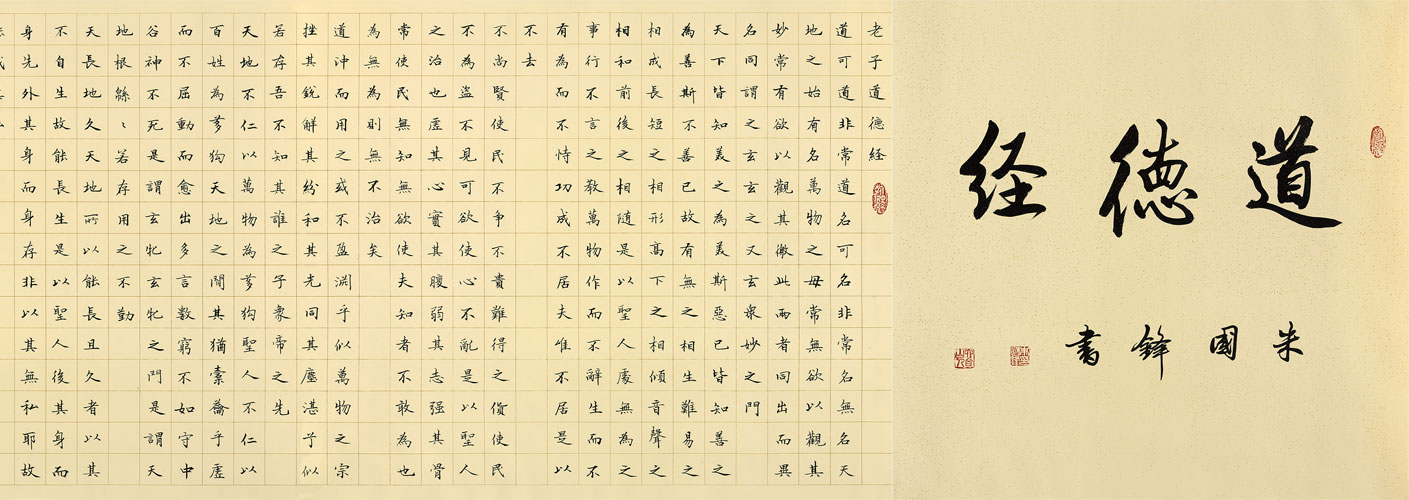 道德经
朱國鋒書
老子道德經
道可道非常道名可名非常名無名天
地之始有名萬物之母常無欲以觀其
妙常有欲以觀其徼此兩者同出而異
名同謂之玄玄之又玄衆妙之門
天下皆知美之為美斯惡已皆知善之
為善斯不善已故有無之相生難易之
相成長短之相形高下之相傾音聲之
相和前後之相随是以聖人處無為之
事行不言之教萬物作而不辭生而不
有為而不恃功成不居夫唯不居是以
不去
不尚賢使民不爭不貴難得之貨使民
不為盜不見可欲使心不亂是以聖人
之治也虛其心實其腹弱其志强其骨
常使民無知無欲使夫知者不敢為也
為無為則無不治矣
道沖而用之或不盈淵乎似萬物之宗
挫其銳解其紛和其光同其塵湛兮似
若存吾不知其誰之子象帝之先
天地不仁以萬物為芻狗聖人不仁以
百姓為芻狗天地之間其猶橐籥乎虛
而不屈動而愈出多言數窮不如守中
谷神不死是謂玄牝玄牝之門是謂天
地根緜〻若存用之不勤
天長地久天地所以能長且久者以其
不自生故能長生是以聖人後其身而
身先外其身而身存非以其無私耶故